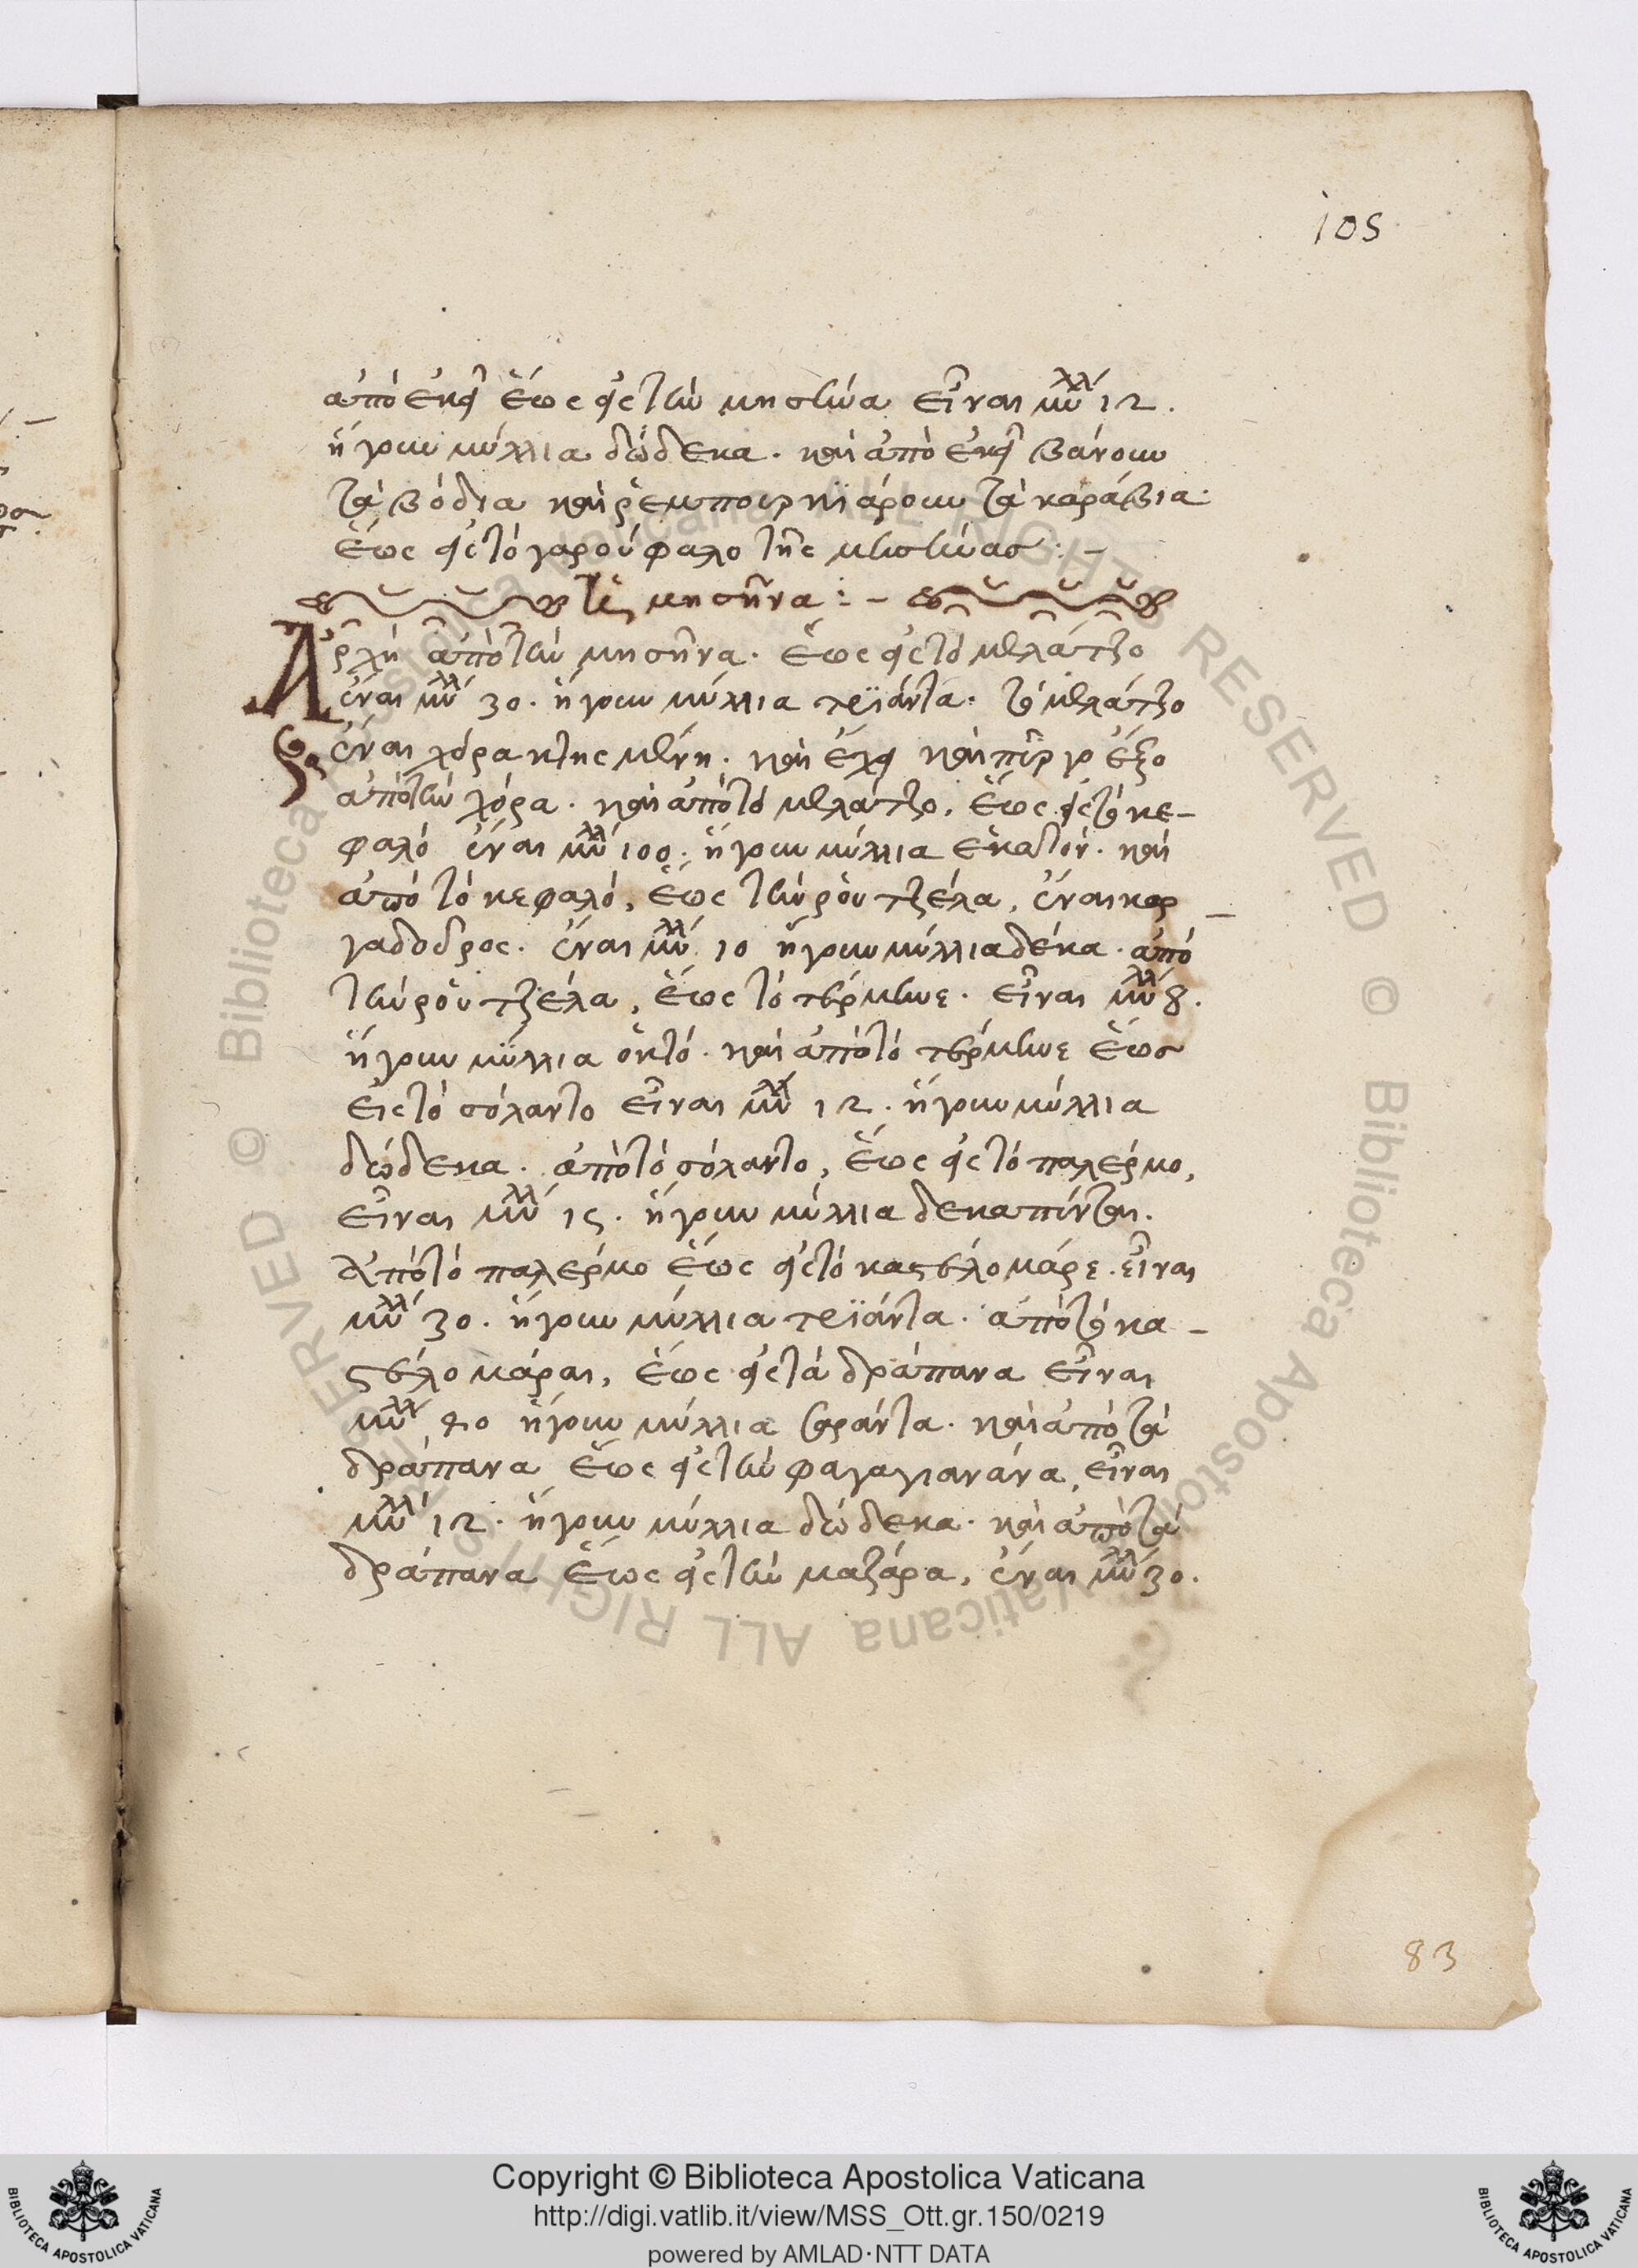 105
ἀπὸ ἐκεῖ ἕως εἰς τὴν μησίνα εἶναι μύλλ 12.
ἤγουν μύλλια δώδεκα. καὶ ἀπὸ ἐκεῖ βάνουν
τὰ βόδια καὶ ῥεμπουρκϊάρουν τὰ καράβια·
ἕως εἰς τὸ γαρούφαλο τῆς μισίνας :-
τῆς μησῆνα :-
Ἀρχὴ ἀπὸ τὴν μησῆνα. ἕως εἰς τὸ μελάτζο
ἔναι μύλλ 30. ἤγουν μύλλια τριϊάντα. τὸ μελάτζο
ἔναι χόρα κτησμένη. καὶ ἔχει καὶ πῖργο ἔξο
ἀπὸ τὴν χόρα. καὶ ἀπὸ τὸ μελάτζο, ἕως εἰς τὸ κε-
φαλό ἔναι μύλλ 100. ἤγουν μύλλια ἑκατόν. καὶ
ἀπὸ τὸ κεφαλό, ἕως τὴν ρὸν τζέλα, ἔναι καρ
γαδόδρος. ἔναι μύλλ 10 ἤγουν μύλλια δέκα. ἀπὸ
τὴν ρὸν τζέλα, ἕως τὸ τέρμινε. εἶναι μύλλ 8.
ἤγουν μύλλια ὀκτό. καὶ ἀπὸ τὸ τέρμινε ἕως
εἰς τὸ σόλαντο εἶναι μύλλ 12. ἤγουν μύλλια
δώδεκα. ἀπὸ τὸ σόλαντο, ἕως εἰς τὸ παλέρμο,
εἶναι μύλλ 15. ἤγουν μύλλια δεκαπέντε.
Ἀπὸ τὸ παλέρμο ἕως εἰς τὸ καστέλο μάρε. εἶναι
μύλλ 30. ἤγουν μύλλια τριϊάντα. ἀπὸ τὸ κα-
στέλο μάραι, ἕως εἰς τὰ δράπανα εἶναι
μύλλ 40 ἤγουν μύλλια σαράντα. καὶ ἀπὸ τὰ
δράπανα ἕως εἰς τὴν φαγαγιανάνα, εἶναι
μύλλ 12. ἤγουν μύλλια δώδεκα. καὶ ἀπὸ τὰ
δράπανα ἕως εἰς τὴν μαζάρα, ἔναι μύλλ 30.
83
Copyright © Biblioteca Apostolica Vaticana
http://digi.vatlib.it/view/MSS_Ott.gr.150/0219
powered by AMLAD·NTT DATA
BIBLIOTECA APOSTOLICA VATICANA
BIBLIOTECA APOSTOLICA VATICANA